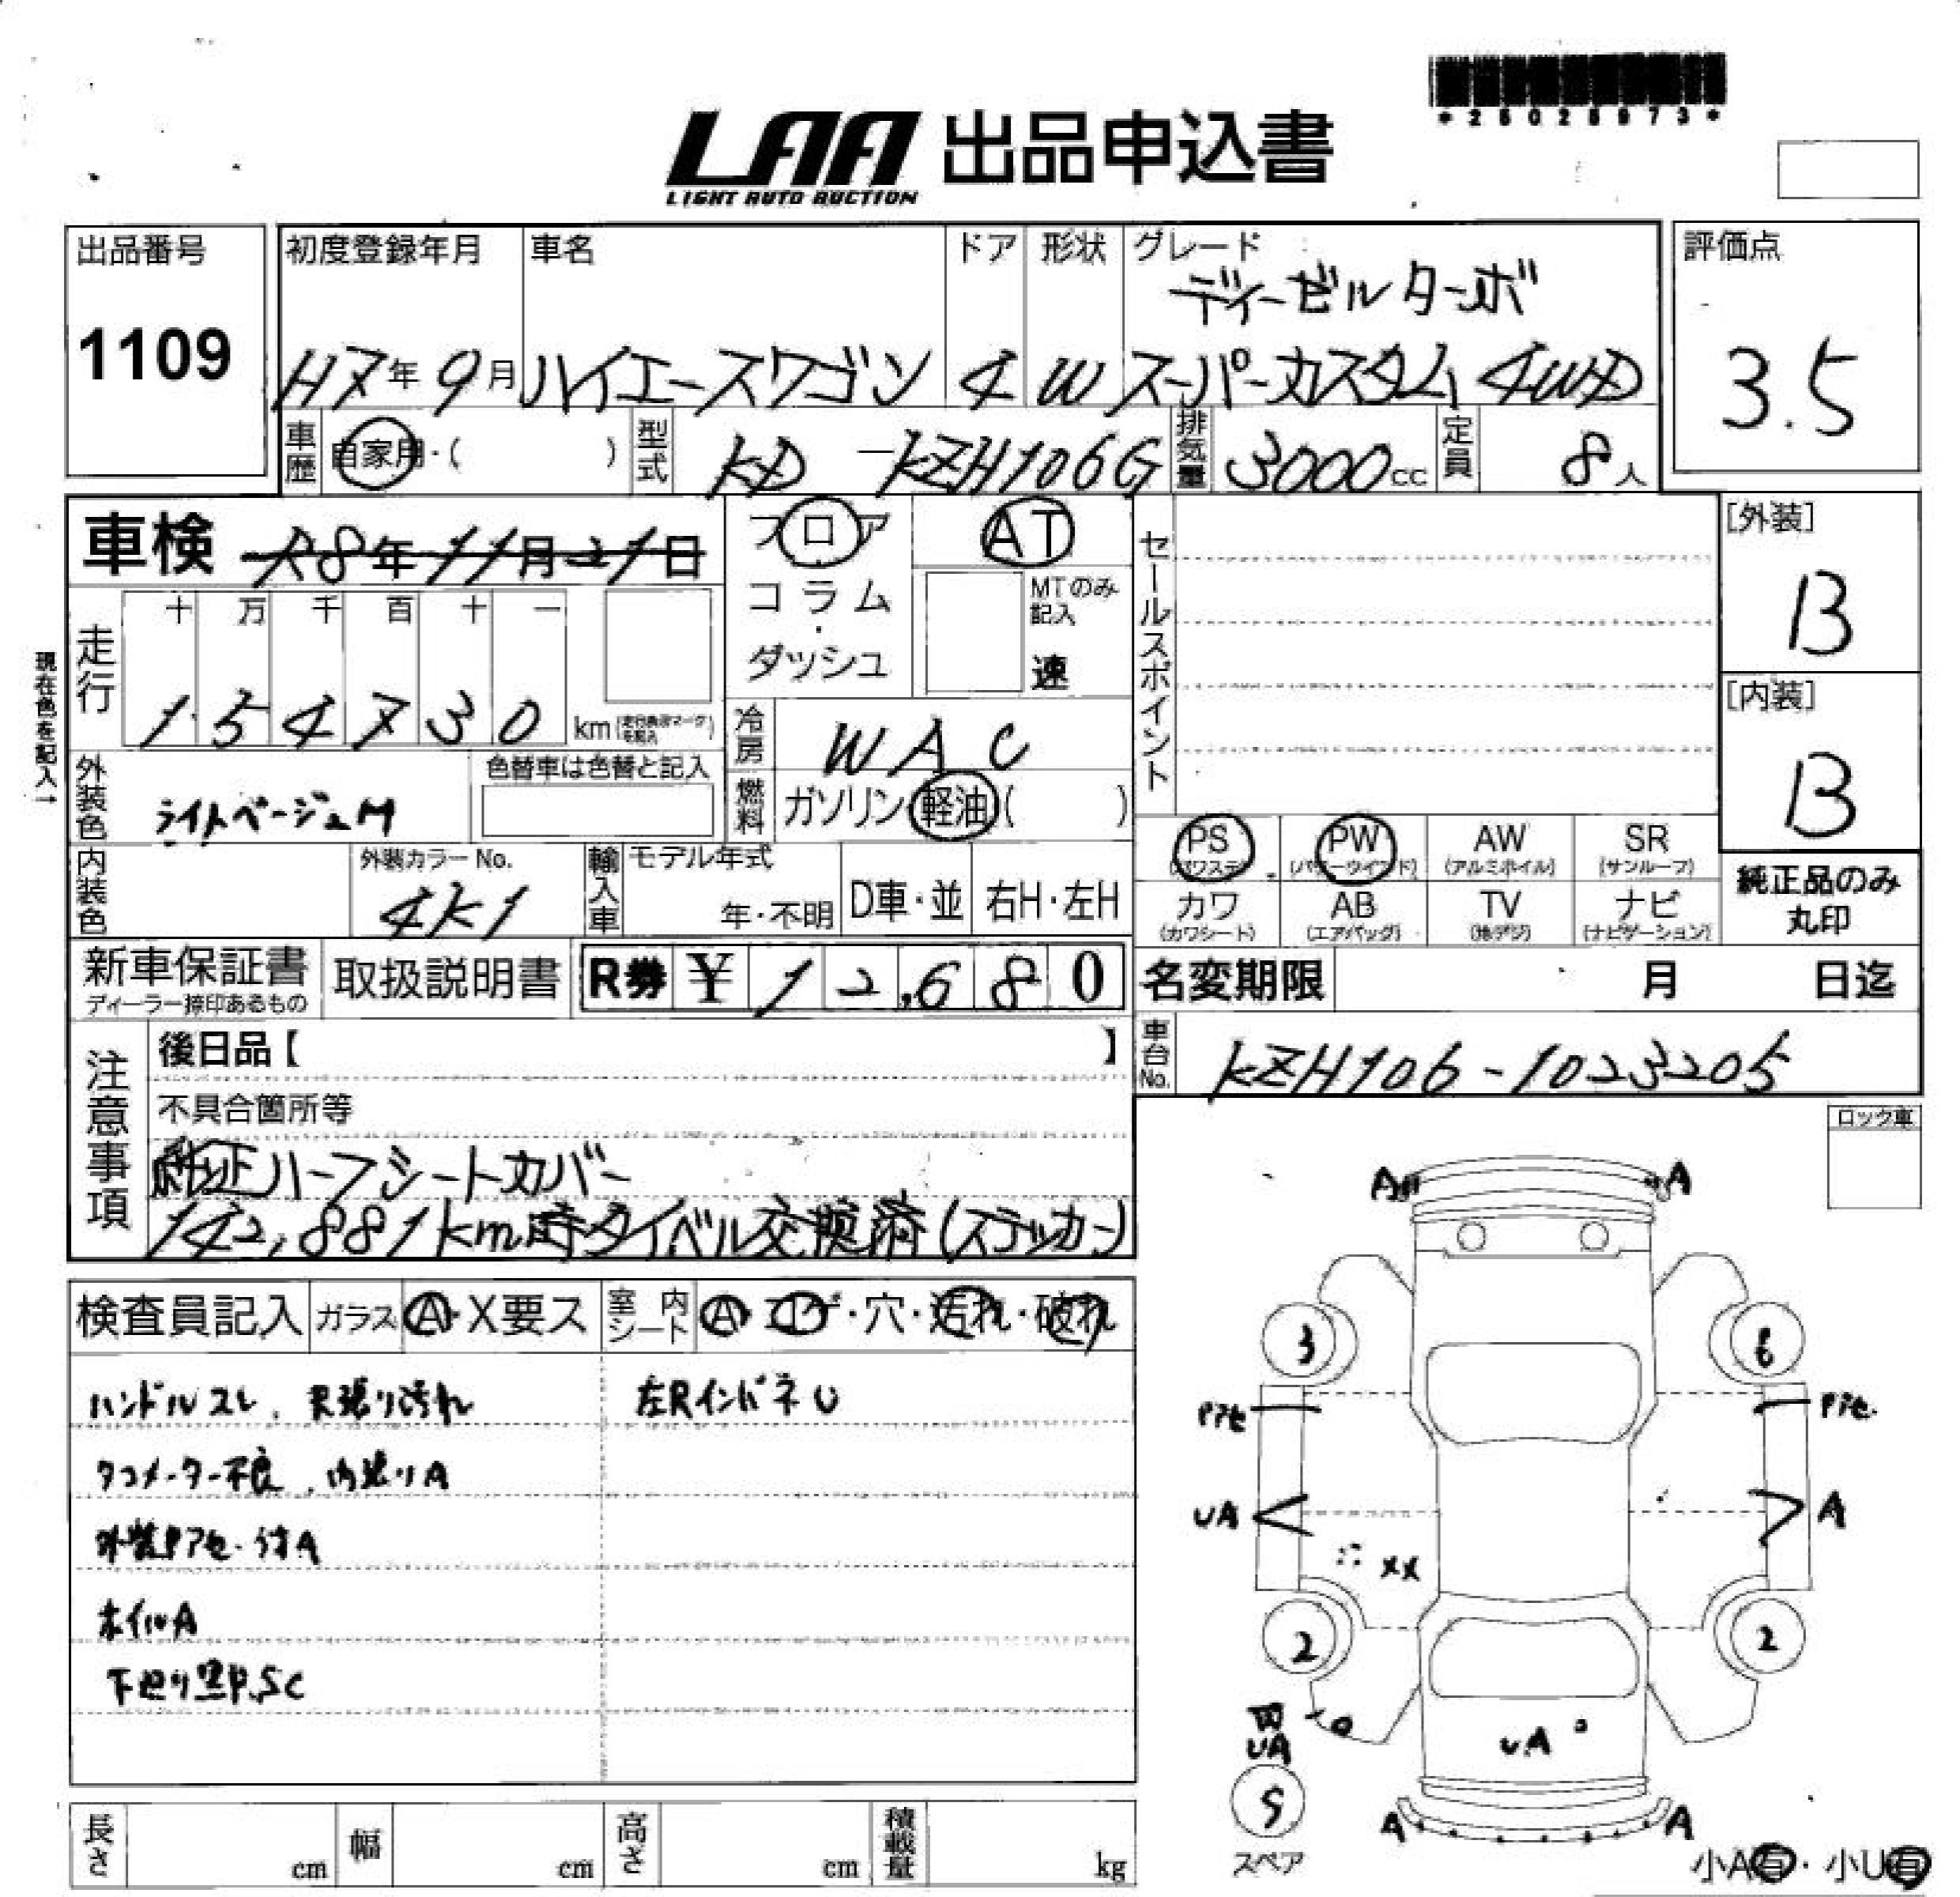 *25028973*
LAA 出品申込書
LIGHT AUTO AUCTION
出品番号
1109
初度登録年月
H7年9月
車名
ハイエースワゴン
ドア
4
形状
W
グレード
ディーゼルターボ
スーパーカスタム 4WD
評価点
3.5
車歴 自家用・( )
型式 KD-KZH106G
排気量 3000cc
定員 8人
車検 R8年11月21日
フロア・コラム・ダッシュ
AT
MTのみ記入
速
セールスポイント
[外装]
B
[内装]
B
現在色を記入→
走行
十 万 千 百 十 一
1 5 4 7 3 0 km(走行表示マークを記入)
冷房 WAC
燃料 ガソリン・軽油( )
外装色 ライトベージュM
色替車は色替と記入
内装色
外装カラーNo.
4K1
輸入車 モデル年式
年・不明 D車・並 右H・左H
PS (パワステ)
PW (パワーウインド)
AW (アルミホイル)
SR (サンルーフ)
カワ (カワシート)
AB (エアバッグ)
TV (地デジ)
ナビ (ナビゲーション)
純正品のみ
丸印
新車保証書
ディーラー捺印あるもの
取扱説明書
R券 ¥12,680
名変期限 月 日迄
車台No. KZH106-1023205
注意事項
後日品【 】
不具合箇所等
純正ハーフシートカバー
142,881km時タイベル交換済(ステッカー)
ロック車
検査員記入 ガラス A・X要ス 室内シート A・コゲ・穴・汚れ・破れ
ハンドルスレ、天張り汚れ
左RインパネU
タコメーター不良、内張りA
外装Pアセ・付A
ホイルA
下廻り黒P、SC
A A
3 6
Pアセ Pアセ
UA A
XX
2 2
UA
UA
5
スペア
A A
小A有・小U有
長さ cm 幅 cm 高さ cm 積載量 kg